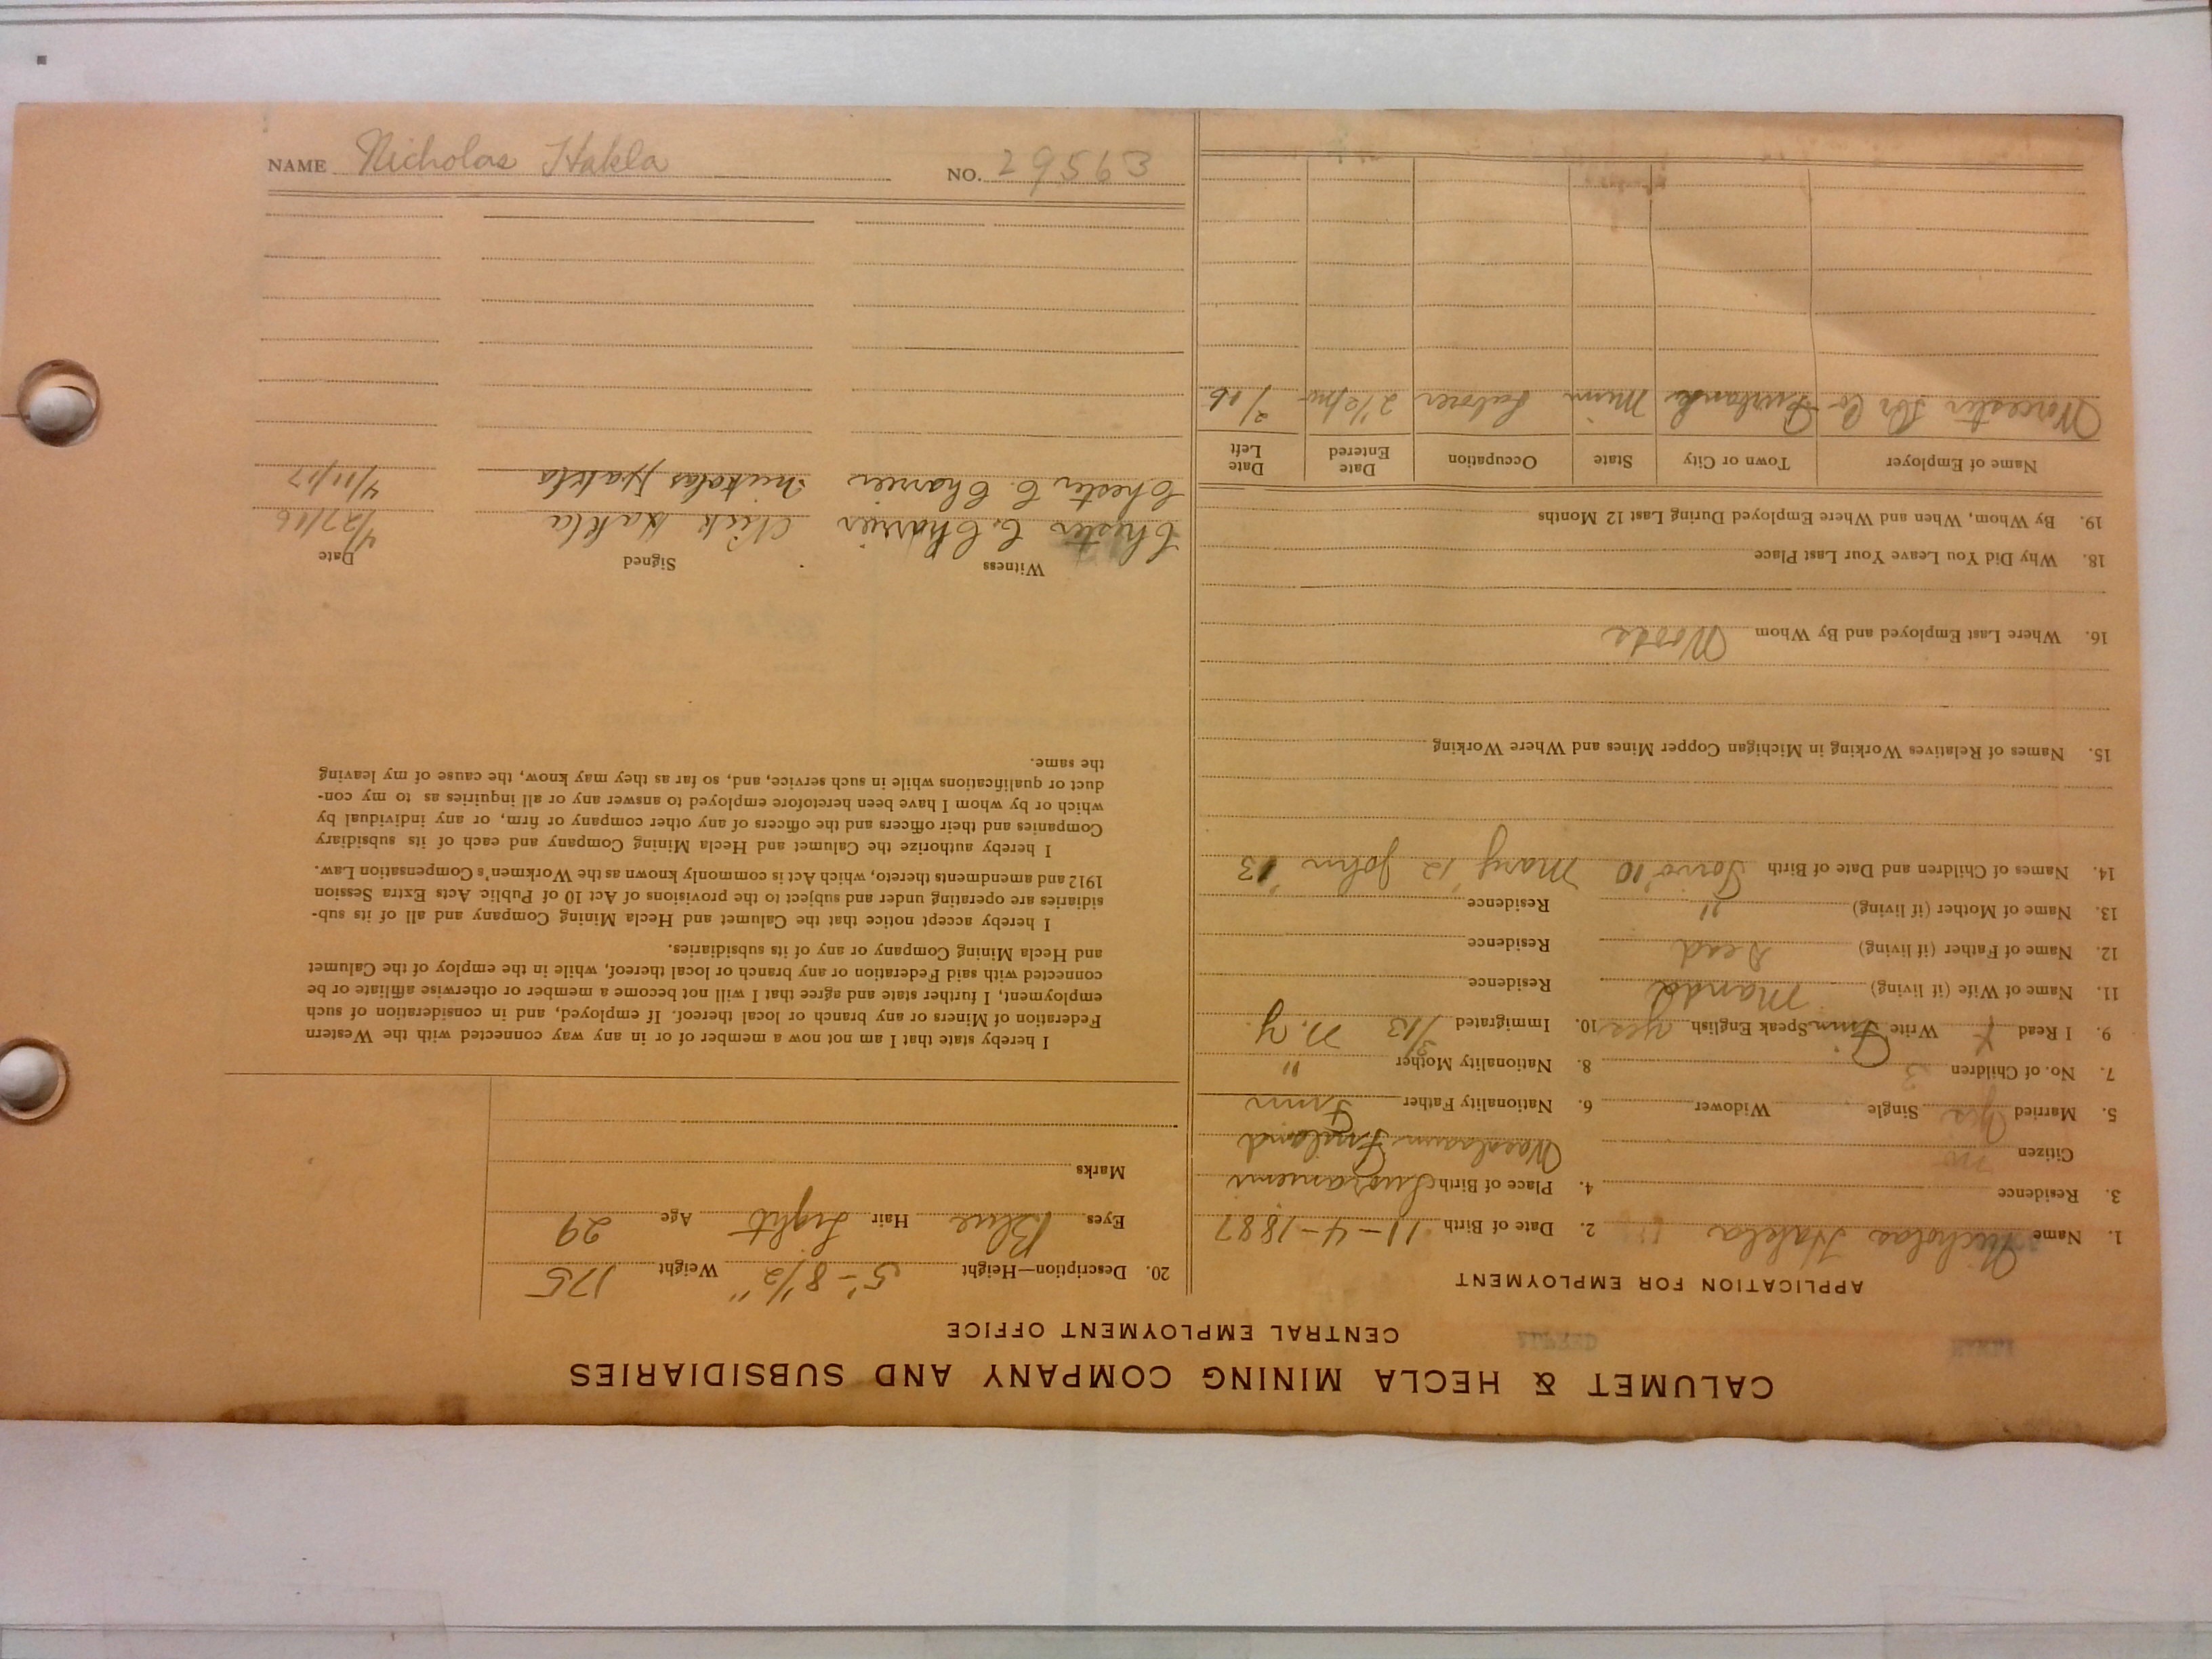 CALUMET & HECLA MINING COMPANY AND SUBSIDIARIES
CENTRAL EMPLOYMENT OFFICE
APPLICATION FOR EMPLOYMENT
1. Name Nicholas Hakla 2. Date of Birth 11-4-1887
3. Residence 4. Place of Birth
Citizen
5. Married Yes Single Widower 6. Nationality Father Finn
7. No. of Children 3 8. Nationality Mother "
9. I Read Write Finn Speak English yes 10. Immigrated 3/13 N.Y
11. Name of Wife (if living) Manda Residence
12. Name of Father (if living) Dead Residence
13. Name of Mother (if living) " Residence
14. Names of Children and Date of Birth '10 Mary '12 John '13
15. Names of Relatives Working in Michigan Copper Mines and Where Working
16. Where Last Employed and By Whom Woods
18. Why Did You Leave Your Last Place
19. By Whom, When and Where Employed During Last 12 Months
Name of Employer Town or City State Occupation Date Entered Date Left
Worcester Co Minn Laborer 2 1/2 mo 2/16
20. Description—Height 5'-8 1/2" Weight 175
Eyes Blue Hair Light Age 29
Marks
I hereby state that I am not now a member of or in any way connected with the Western
Federation of Miners or any branch or local thereof. If employed, and in consideration of such
employment, I further state and agree that I will not become a member or otherwise affiliate or be
connected with said Federation or any branch or local thereof, while in the employ of the Calumet
and Hecla Mining Company or any of its subsidiaries.
I hereby accept notice that the Calumet and Hecla Mining Company and all of its sub-
sidiaries are operating under and subject to the provisions of Act 10 of Public Acts Extra Session
1912 and amendments thereto, which Act is commonly known as the Workmen's Compensation Law.
I hereby authorize the Calumet and Hecla Mining Company and each of its subsidiary
Companies and their officers and the officers of any other company or firm, or any individual by
which or by whom I have been heretofore employed to answer any or all inquiries as to my con-
duct or qualifications while in such service, and, so far as they may know, the cause of my leaving
the same.
Witness Signed Date
Chester C. Charrier Nick Hakla 4/27/16
Chester C. Charrier Nickolas Hakla 4/11/17
NAME Nicholas Hakla NO. 29563